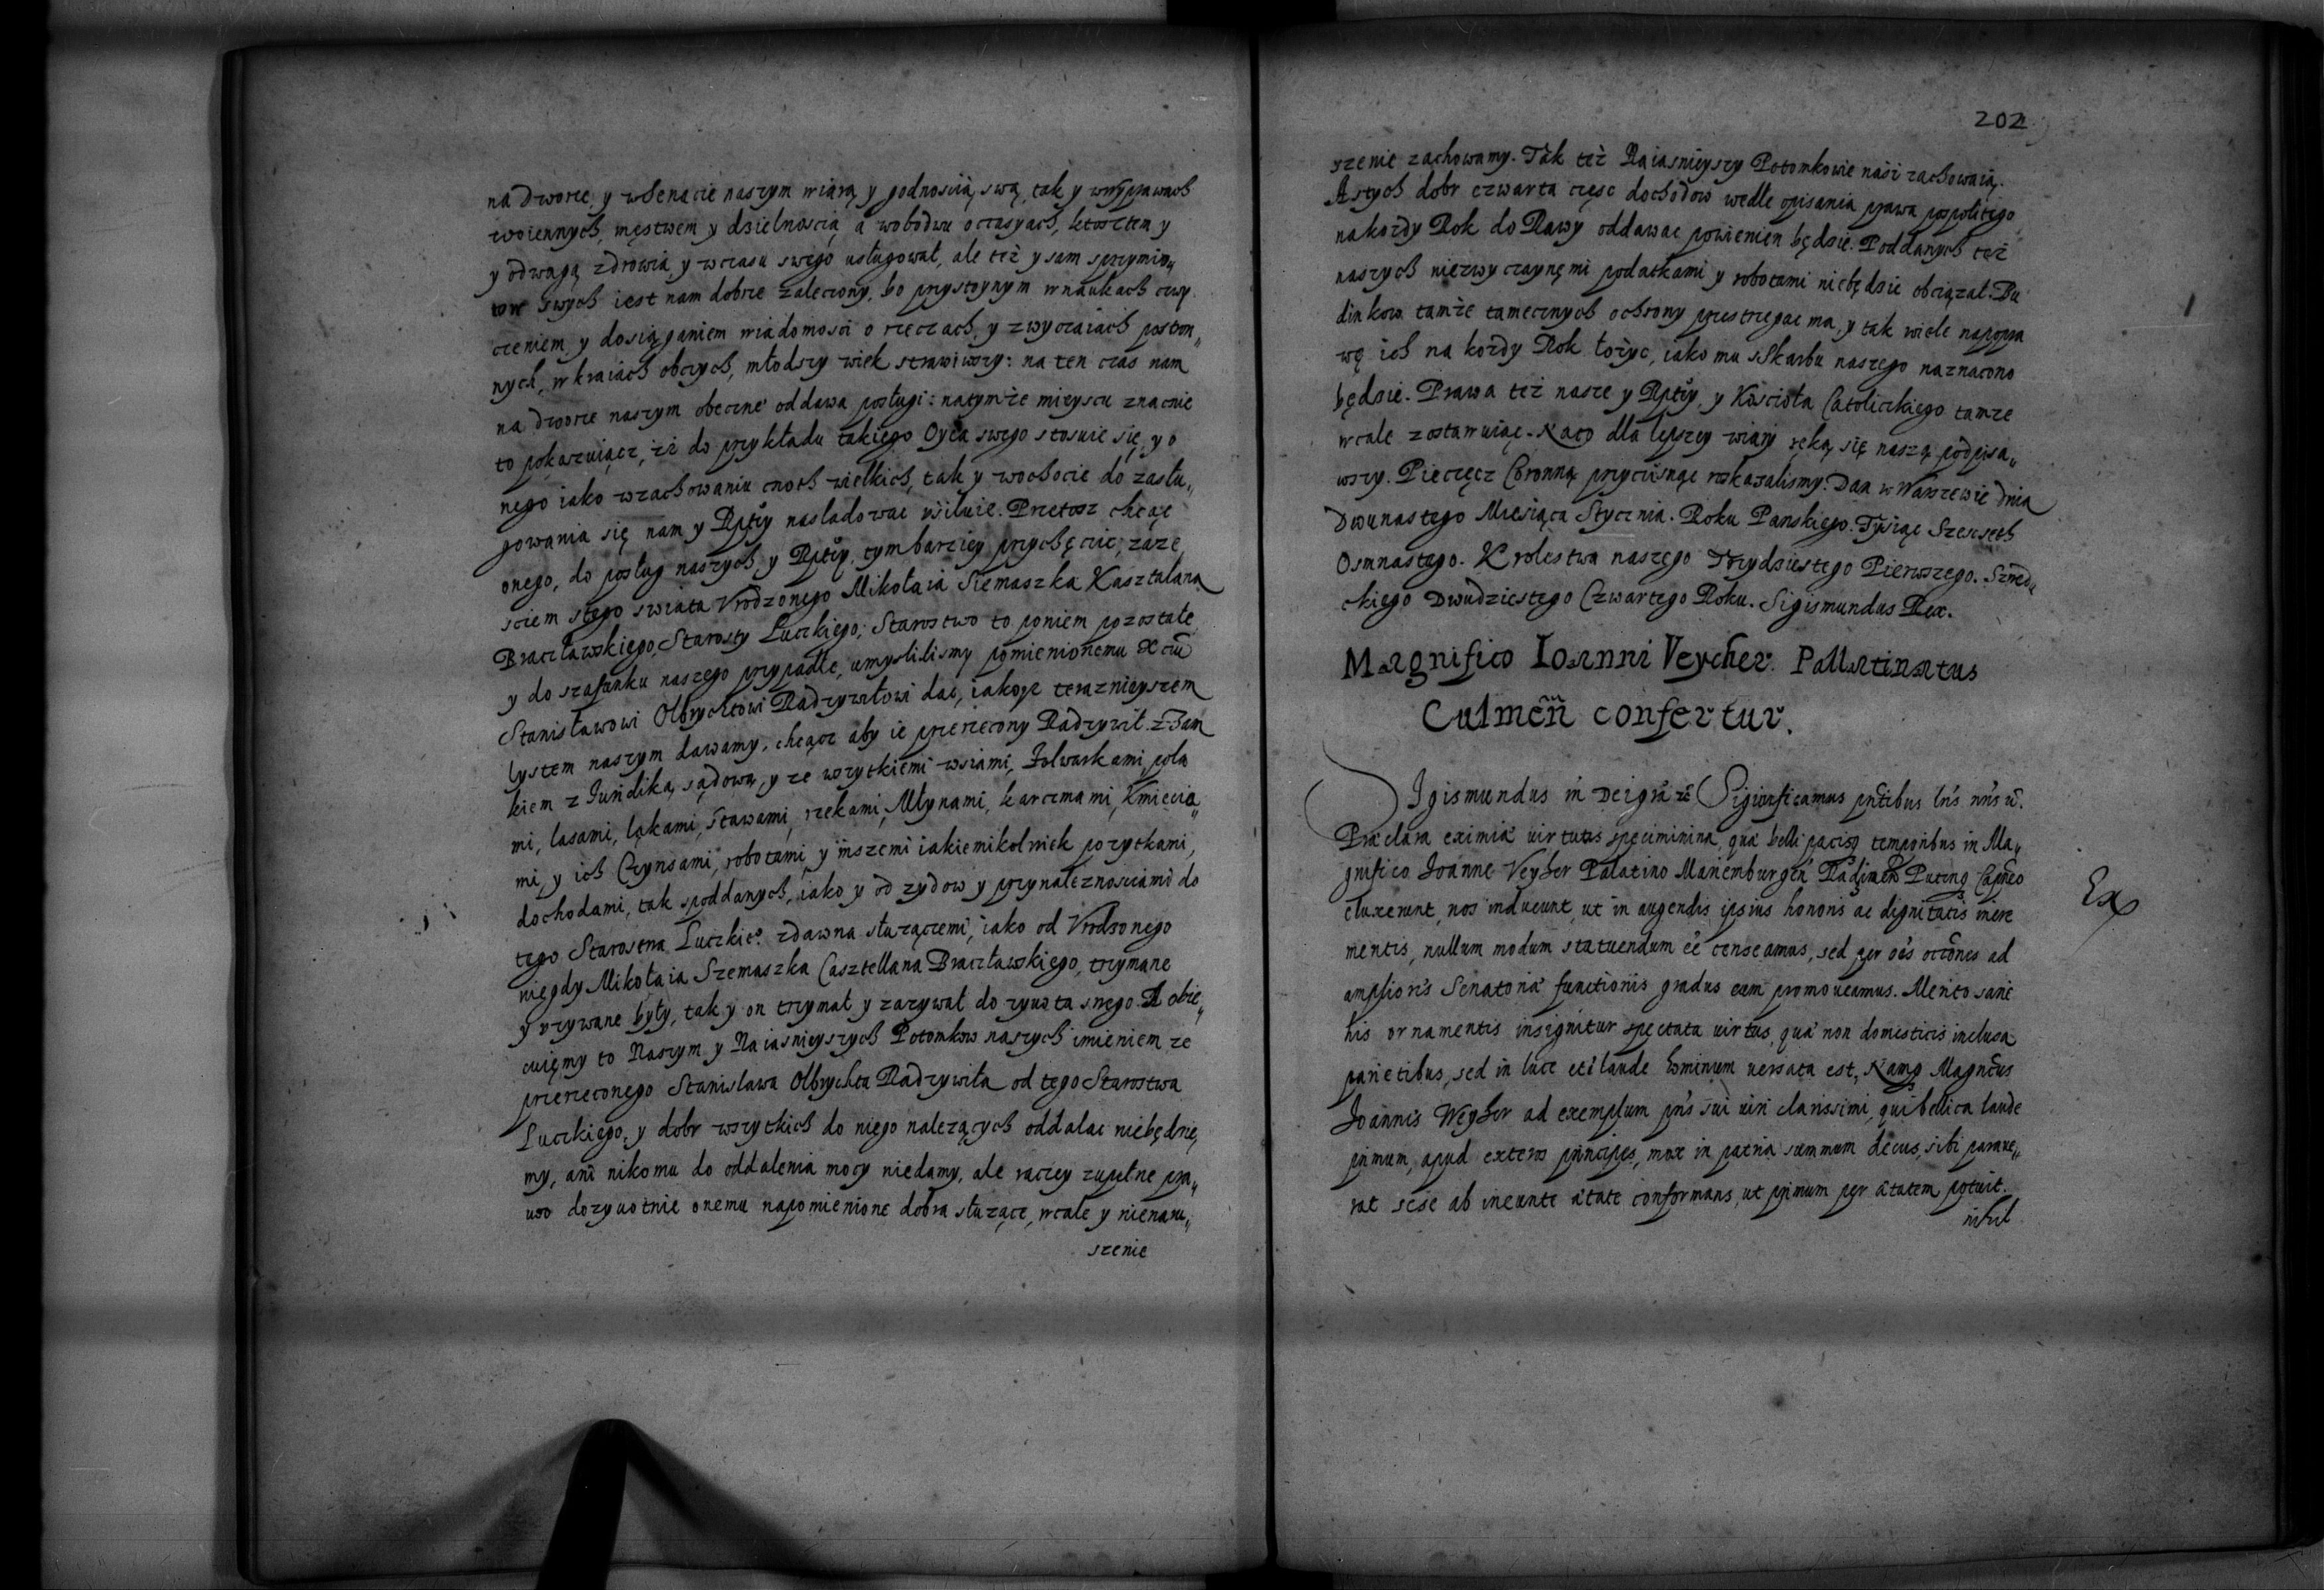 na Dworze, y w Senacie naszym wiarą y godnością swą, tak y w wyprawach
woiennych, męstwem y dzielnoscią a wobodwu occasyach, kosztem y
y odwagą zdrowia y w czasu swego usługował, ale też y sam
swych iest nam dobrze zalecony, bo przystoynym w naukach cwy
czeniem y dosiąganiem wiadomosci o rzeczach, y zwyczaiach postron„
nych, w kraiach obcych, młodszy wiek strawiwszy: na ten czas nam
na dworze naszym obecznè oddawa posługi: na tymże mieyscu znacznie
to pokazuiącz, iż do przykładu takiego Oyca swego stosuie się, y o
nego iako w zachowaniu cnoth wielkich, tak y wochocie do zasłu„
gowania się nam y Rptey nasladowac usiłuie. Przetosz chcąc
onego, do posług naszych y Rptey, tym barziey przychęcic, zaze
sciem stego swiata Vrodzonego Mikołaia Siemaszka Kasztalana
Bracławskiego, Starosty Luczkiego, Starostwo to poniem pozostałe
y do szafunku naszego przypadłe, umyslilismy pomienionemu
Stanisławowi Olbrychtowi Radzywiłowi dac, iakosz teraznieyszem
lystem naszym dawamy, chcącz aby ie przerzeczony Radzywił z Zam
kiem z Juridiką sądową, y ze wszytkiemi wsiami, Folwarkami, pola
mi, lasami, ląkami, stawami, rzekami, Młynami, karczmami, kmiecia„
mi, y ich Czynsami, robotami, y inszemi iakiemikolwiek pozytkami,
dochodami, tak spoddanych, iako y od zydow y przynaleznosciami do
tego Starostwa Luczkieo zdawna słuzączemi, iako od Vrodzonego
niegdy Mikołaia Szemaszka Casztellana Bracławskiego, trzymane
y vzywane były, tak y on trzymał y zazywał do zywota swego. A obie„
cuięmy to Naszym y Naiasnieyszych Potomkow naszych imieniem ze
przerzeczonego Stanislawa Olbrychta Radzywiła od tego Starostwa
Luczkiego, y dobr wszytkich do niego nalezących oddalac niebędzie,
my, ani nikomu do oddalenia mocy niedamy, ale raczey zupełne pra„
uuo dozywotnie onemu napomienione dobra słuzące, wcale y nienaru„
szenie
202
szenie zachowamy. Tak też Naiasnieyszy Potomkowie naszi zachowaią.
A stych dobr czwarta częsc dochodow wedle opisania prawa pospolitego
nakozdy Rok do Rawy oddawac powienien będzie. Poddanych też
naszych niezwyczaynęmi podatkami y robotami niebędzie obciązał. Bu
dinkow tamże tamecznych ochrony przestrzegac ma, y tak wiele napopra
wę ich na kożdy Rok łożyc, iako mu sskarbu naszego naznaczono
będzie. Prawa też nasze y Rptey, y Koscioła Catolickiego tamze
wcale zostawuiąc. Naco dla lepszey wiary ręką się naszą podpisa„
wszy. Pieczęcz Coronną przycisnąc roskazalismy. Dan w Warszewie Dnia
Dwunastego Miesiąca Stycznia. Roku Panskiego. Tysiąc Szescseth
Osmnastego. Krolestwa naszego Trzydziestego Pierwszego. Szwedz„
ckiego Dwudziestego Czwartego Roku. Sigismundus Rex.
Magnifico Ioanni Veycher. Pallatinatus
Culmeñ confertur.
Igismundus iii Dei gra̅ zc̅ Significamus pn̅tibus lris nris
Præclara eximiæ uirtutis specimina, quæ belli pacisq temporibus in Ma„
gnifico Joanne Veyher Palatino Mariemburgeñ
eluxerunt, nos inducunt, ut in augendis ipsius honoris ac dignitatis incre
mentis, nullum modum statuendum eẽ censeamus, sed per oẽs occões ad
amplioris Senatoriæ functionis gradus eum promoueamus. Merito sane
his ornamentis insignitur spectata uirtus, quæ non domesticis inclusa
parietibus, sed in luce et laude hominum uersata est, Namq Magncus
Joannis Weyher ad exemplum pris sui uiri clarissimi, qui bellica laude
primum, apud exteros principes, mox in patria summum decus, sibi parare„
rat sese ab ineunte ætate conformans, ut primum per ætatem potuit.
nihil
Ex